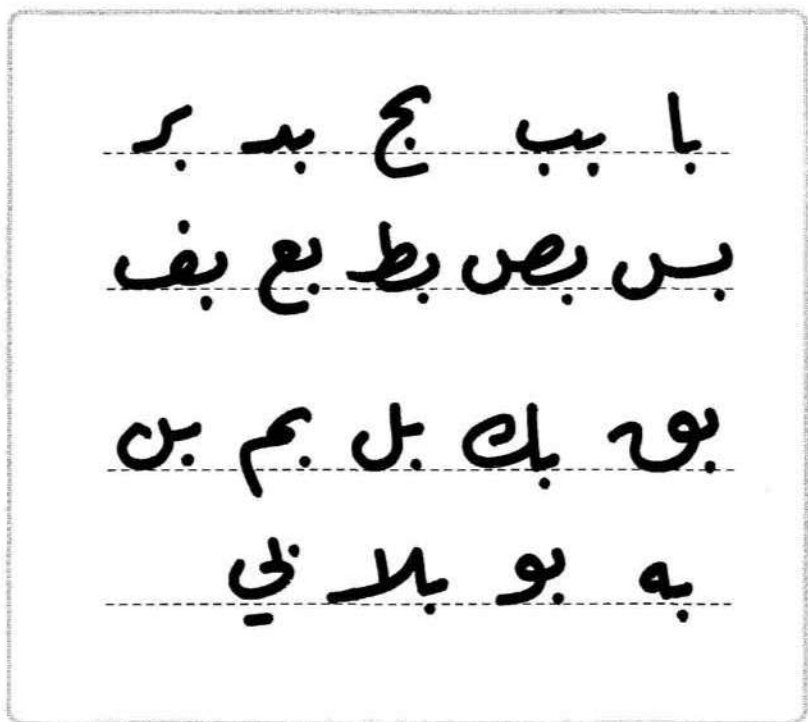 با بب بج بد بر
بس بص بط بع بف
بق بك بل بم بن
به بو بلا بي